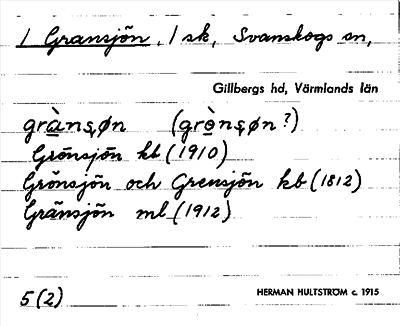 / Gransjön, / sk, Svanskogs sn,
Gillbergs hd, Värmlands län
grànsøn (grònsøn?)
Grönsjön kb (1910)
Grönsjön och Grensjön kb (1812)
Gränsjön ml (1912)
5(2)
HERMAN HULTSTRÖM c. 1915